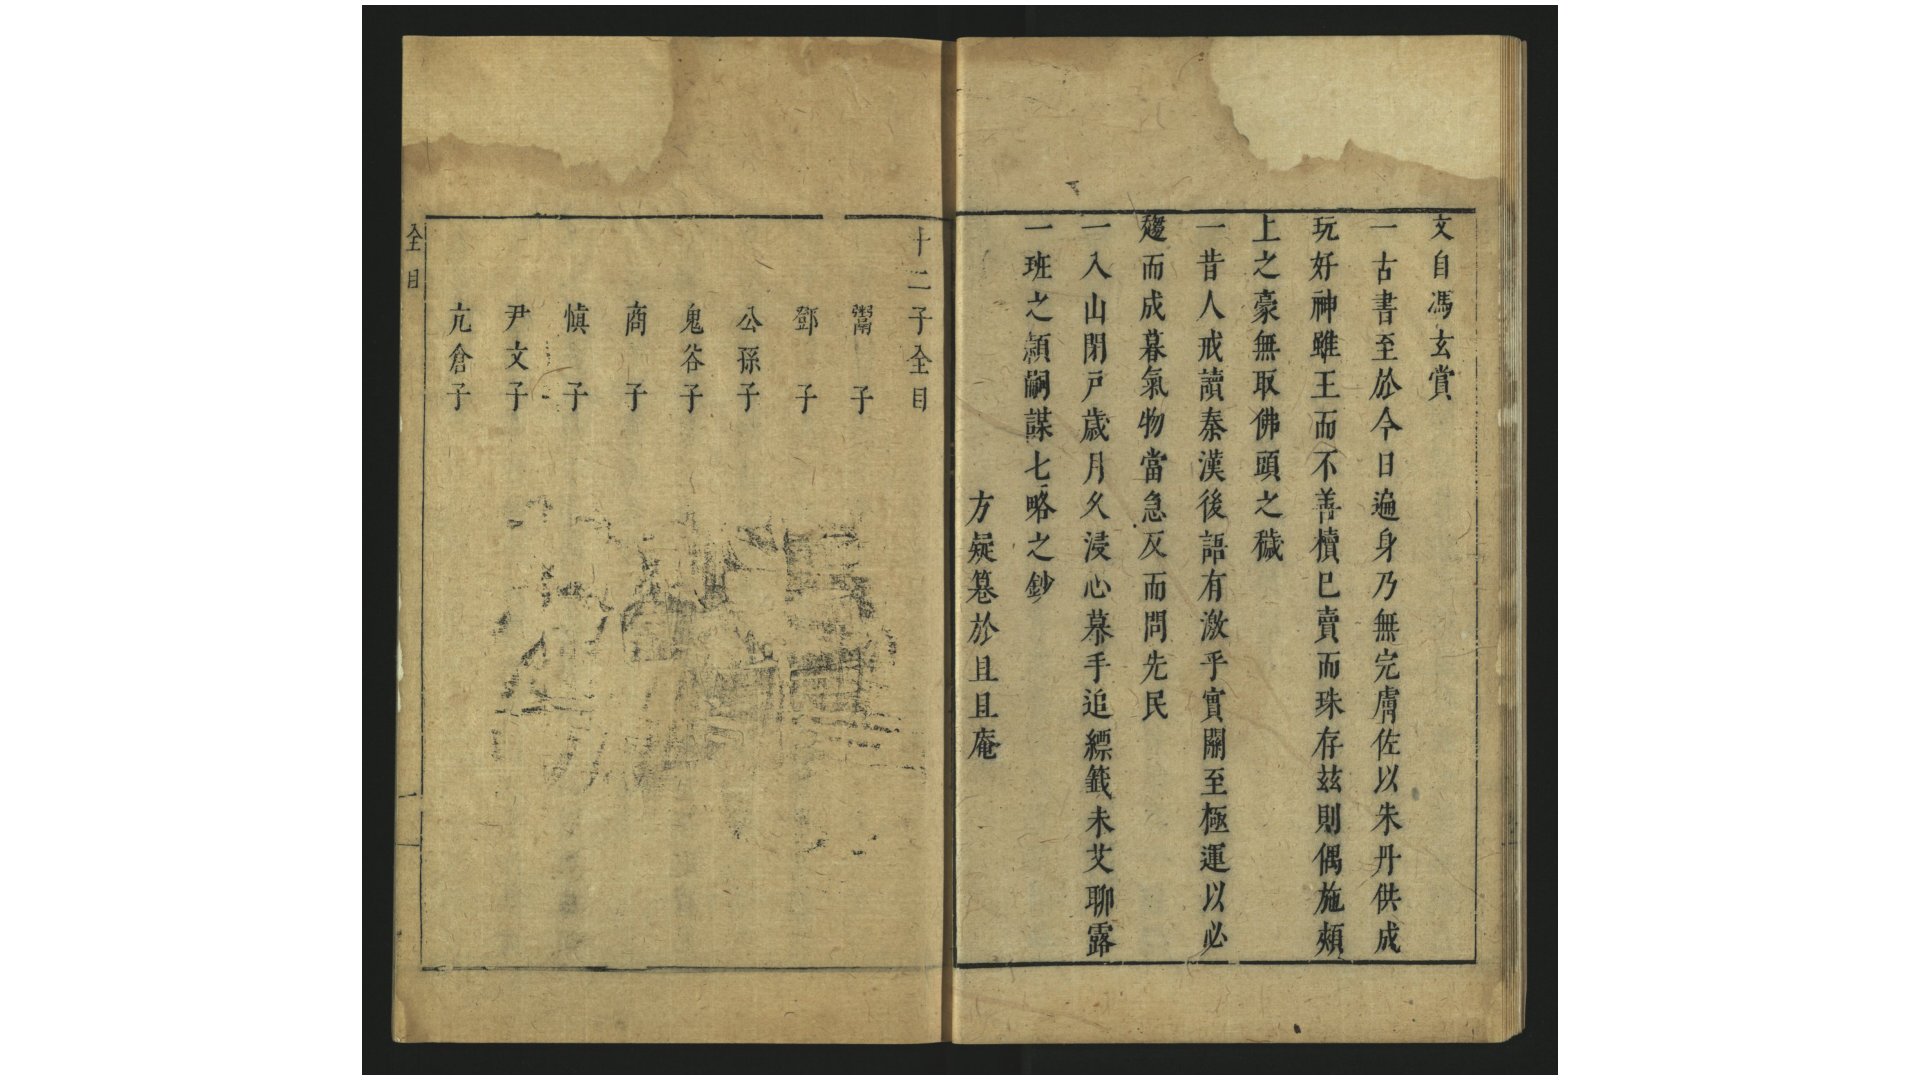 文自馮玄賞
一古書至於今日遍身乃無完膚佐以朱丹供成
玩好神雖王而不善櫝巳賣而珠存茲則偶施頰
上之豪無取佛頭之穢
一昔人戒讀秦漢後語有激乎實關至極運以必
趨而成暮氣物當急反而問先民
一入山閉戸歳月久浸心摹手追縹籤未艾聊露
一班之纇嗣謀七略之鈔
方疑篹於且且庵
十二子全目
鬻子
鄧子
公孫子
鬼谷子
商子
愼子
尹文子
亢倉子
全目
一